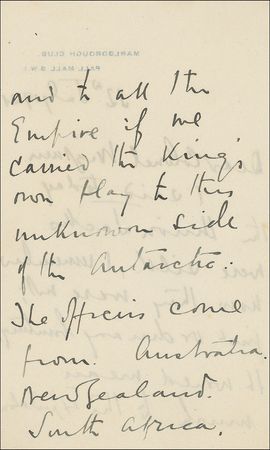 MARLBOROUGH CLUB.
PALL MALL. S.W.
and to all the
Empire if we
carried the King's
own Flag to this
unknown side
of the Antarctic.
The officers come
from Australia.
New Zealand.
South Africa.